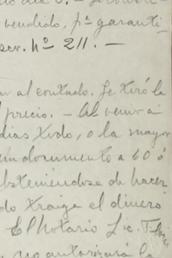 vendido, pª garanti-
scr. nº 211. —
ar al contado. Se tiró la
precio. — Al venir á
dias todo, o la mayor
un documento a 60 ó
absteniendose de hacer
do traiga el dinero
El Notario Lic. T
no autorizará la